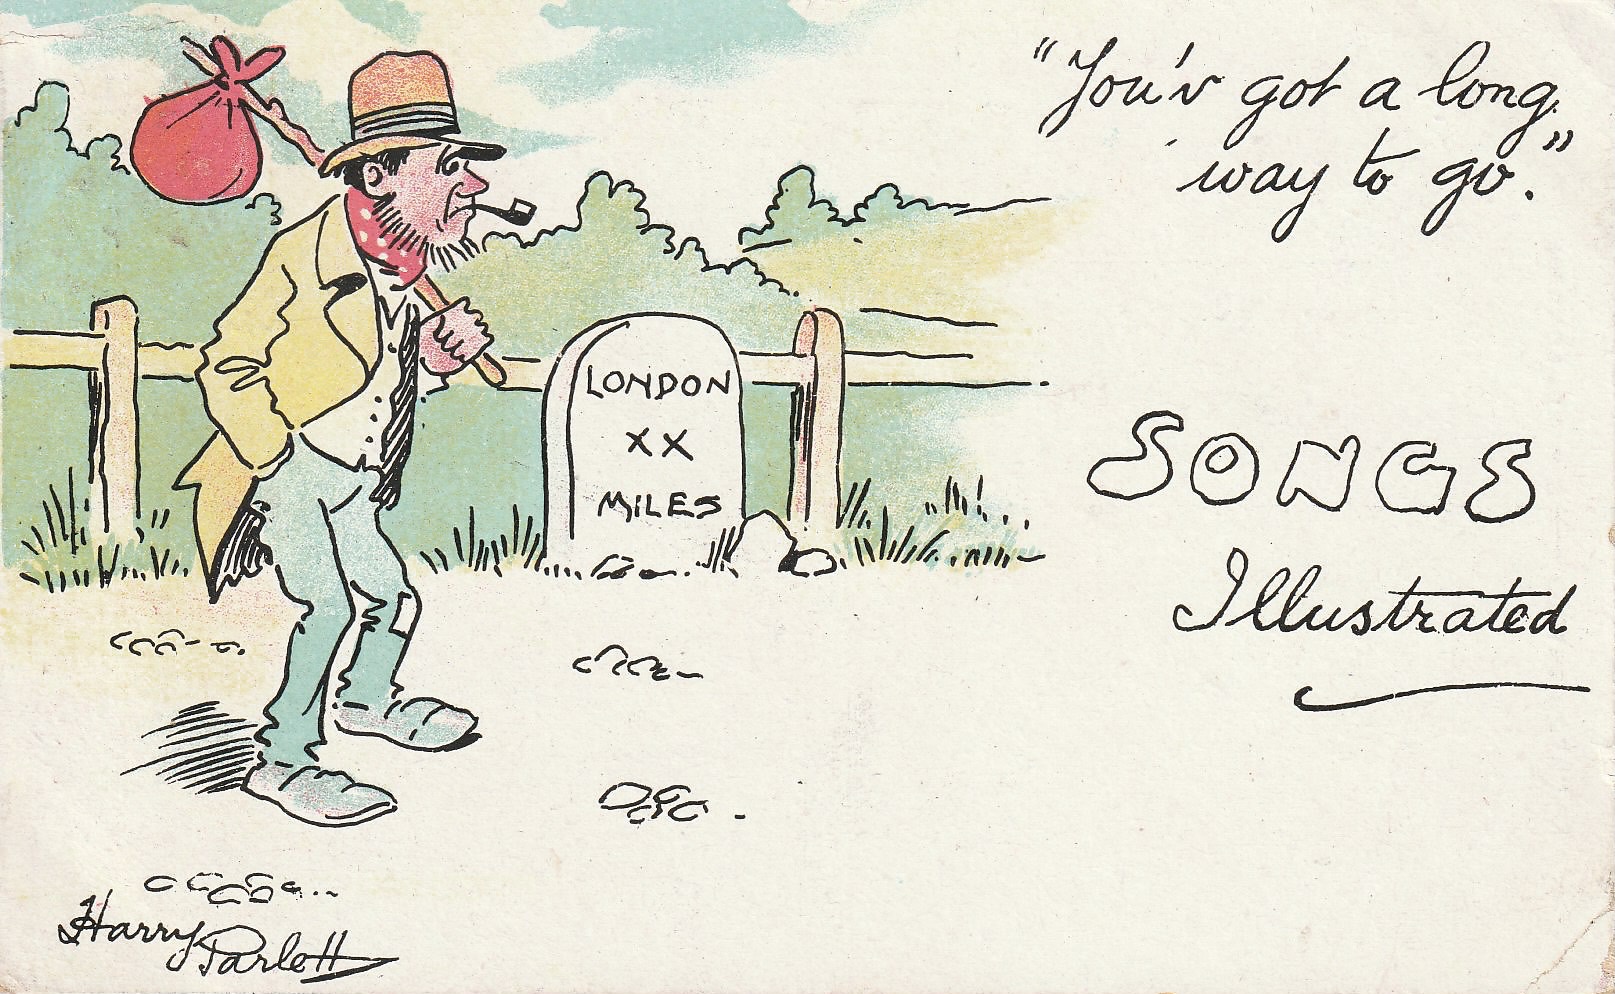 "You'v got a long
way to go."
LONDON
XX
MILES
SONGS
Illustrated
Harry Parlett